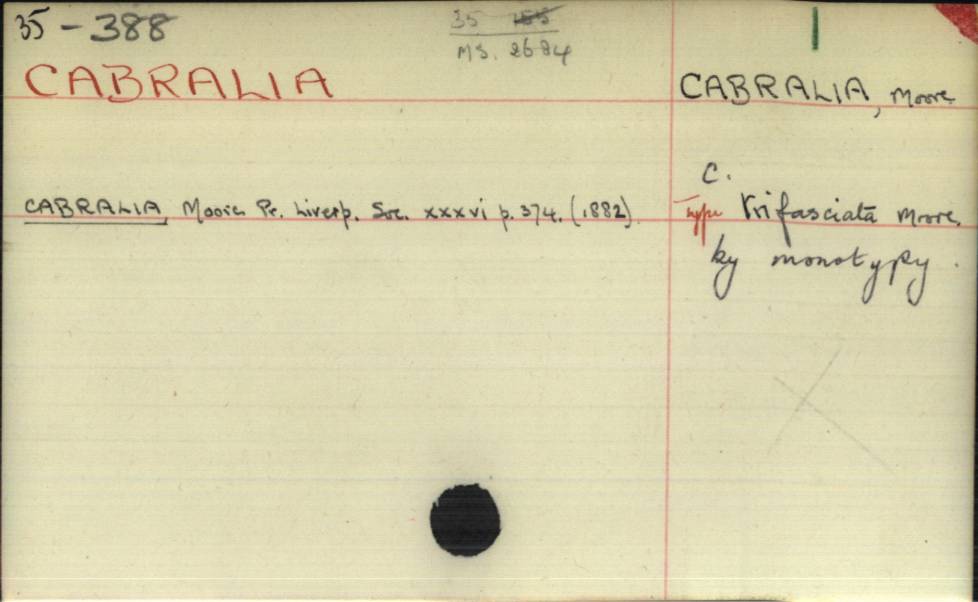 35-388
35 155
MS. 2684
CABRALIA
CABRALIA, Moore
CABRALIA Moore Pr. Liverp. Soc. xxxvi p. 374. (1882).
C.
Type trifasciata Moore.
by monotypy.